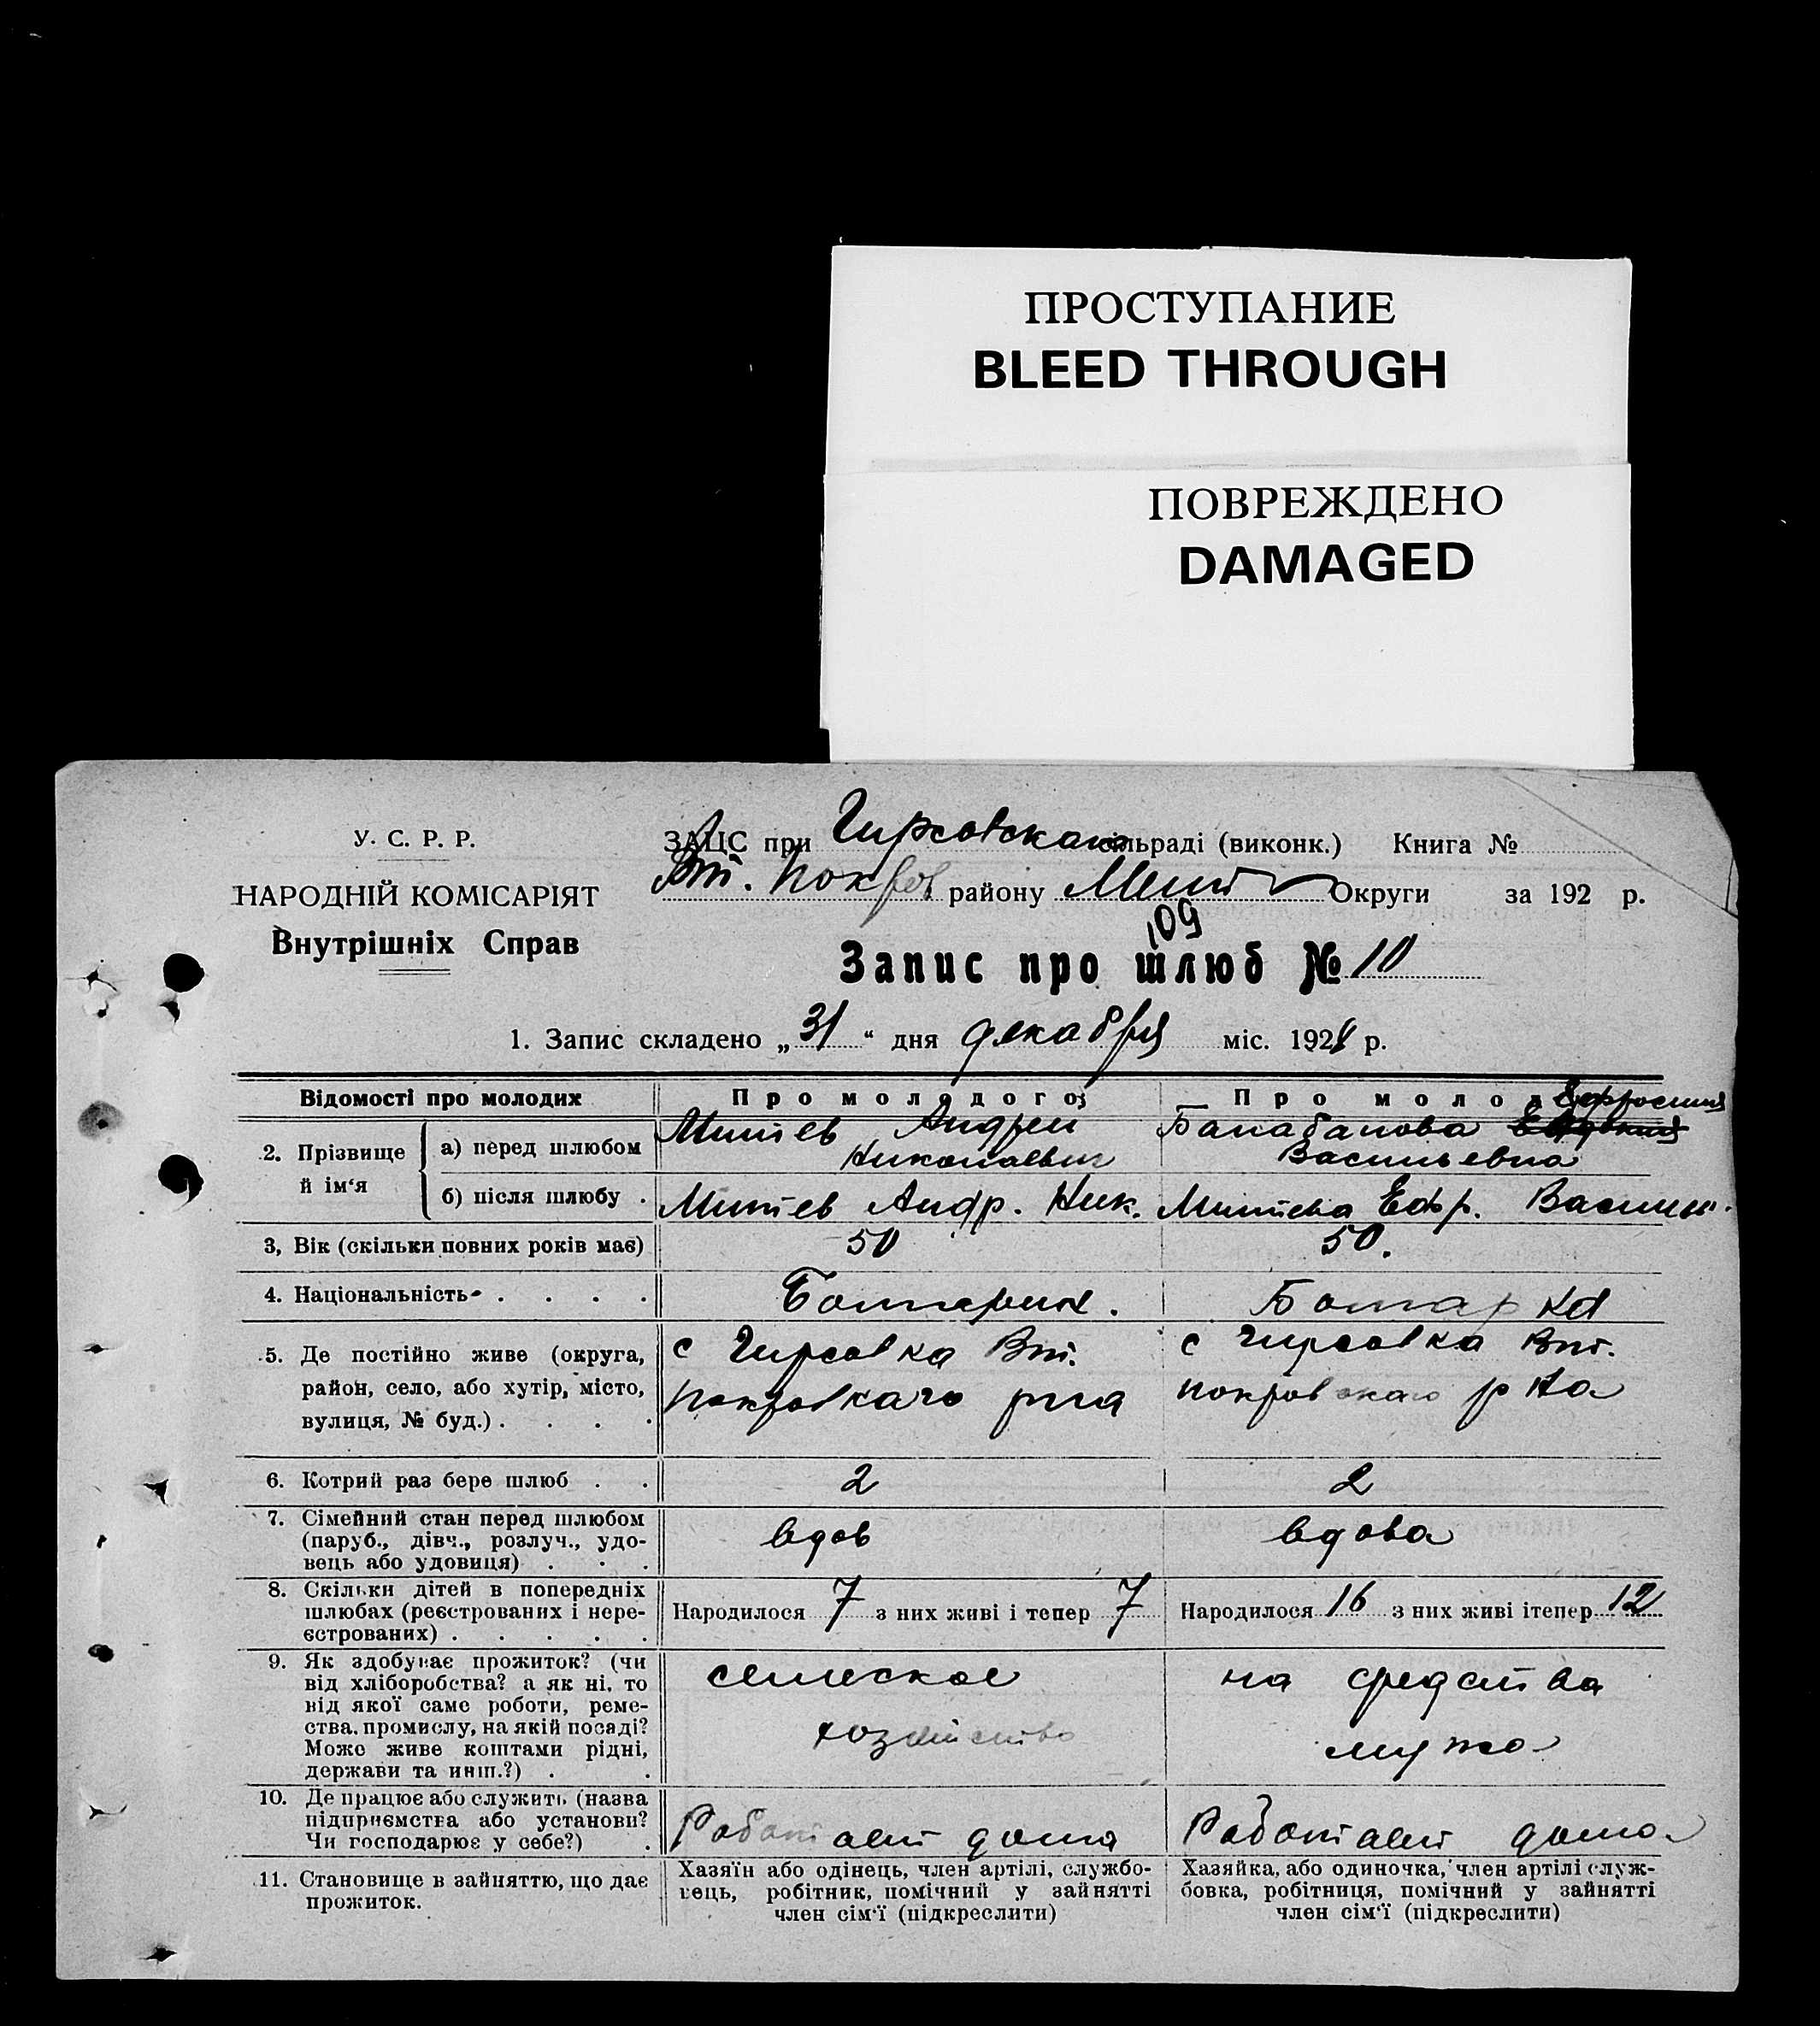 ПРОСТУПАНИЕ
BLEED THROUGH
ПОВРЕЖДЕНО
DAMAGED
У. С. Р. Р.
НАРОДНІЙ КОМІСАРІЯТ
Внутрішніх Справ
ЗАЦС при Гирсовском сільраді (виконк.) Книга №
Вт. Покров району Мелит Округи за 192 р.
109
Запис про шлюб № 10
1. Запис складено „31“ дня декабря міс. 192 р.
Відомості про молодих Про молодого Про молод Ефросиния
2. Прізвище й ім‘я
а) перед шлюбом Митев Андрей Николаевич Балабанова Васильевна
б) після шлюбу . Митев Андр. Ник. Митева Ефр. Василь.
3, Вік (скільки повних років має) 50 50.
4. Національність . . . . Болгарин. Болгарка
5. Де постійно живе (округа, с Гирсовка Вт. с Гирсовка Вт.
район, село, або хутір, місто, покровкаго рна покровскаго р на
вулиця, № буд.) . . . .
6. Котрий раз бере шлюб . . 2 2
7. Сімейний стан перед шлюбом
(паруб., дівч., розлуч., удо- вдов вдова
вець або удовиця) . . .
8. Скільки дітей в попередніх
шлюбах (реєстрованих і нере- Народилося 7 з них живі і тепер 7 Народилося 16 з них живі ітепер 12
єстрованих) . . . . .
9. Як здобуває прожиток? (чи
від хліборобства? а як ні, то сельское на средства
від якої саме роботи, реме-
ства, промислу, на якій посаді? хозяйство мужа
Може живе коштами рідні,
держави та инш.?) . .
10. Де працює або служить (назва
підприємства або установи? Работает дома Работает дома
Чи господарює у себе?) .
11. Становище в зайняттю, що дає прожиток.
Хазяїн або одінець, член артілі, службо-
вець, робітник, помічний у зайнятті
член сім‘ї (підкреслити)
Хазяйка, або одиночка, член артілі служ-
бовка, робітниця, помічний у зайнятті
член сім‘ї (підкреслити)